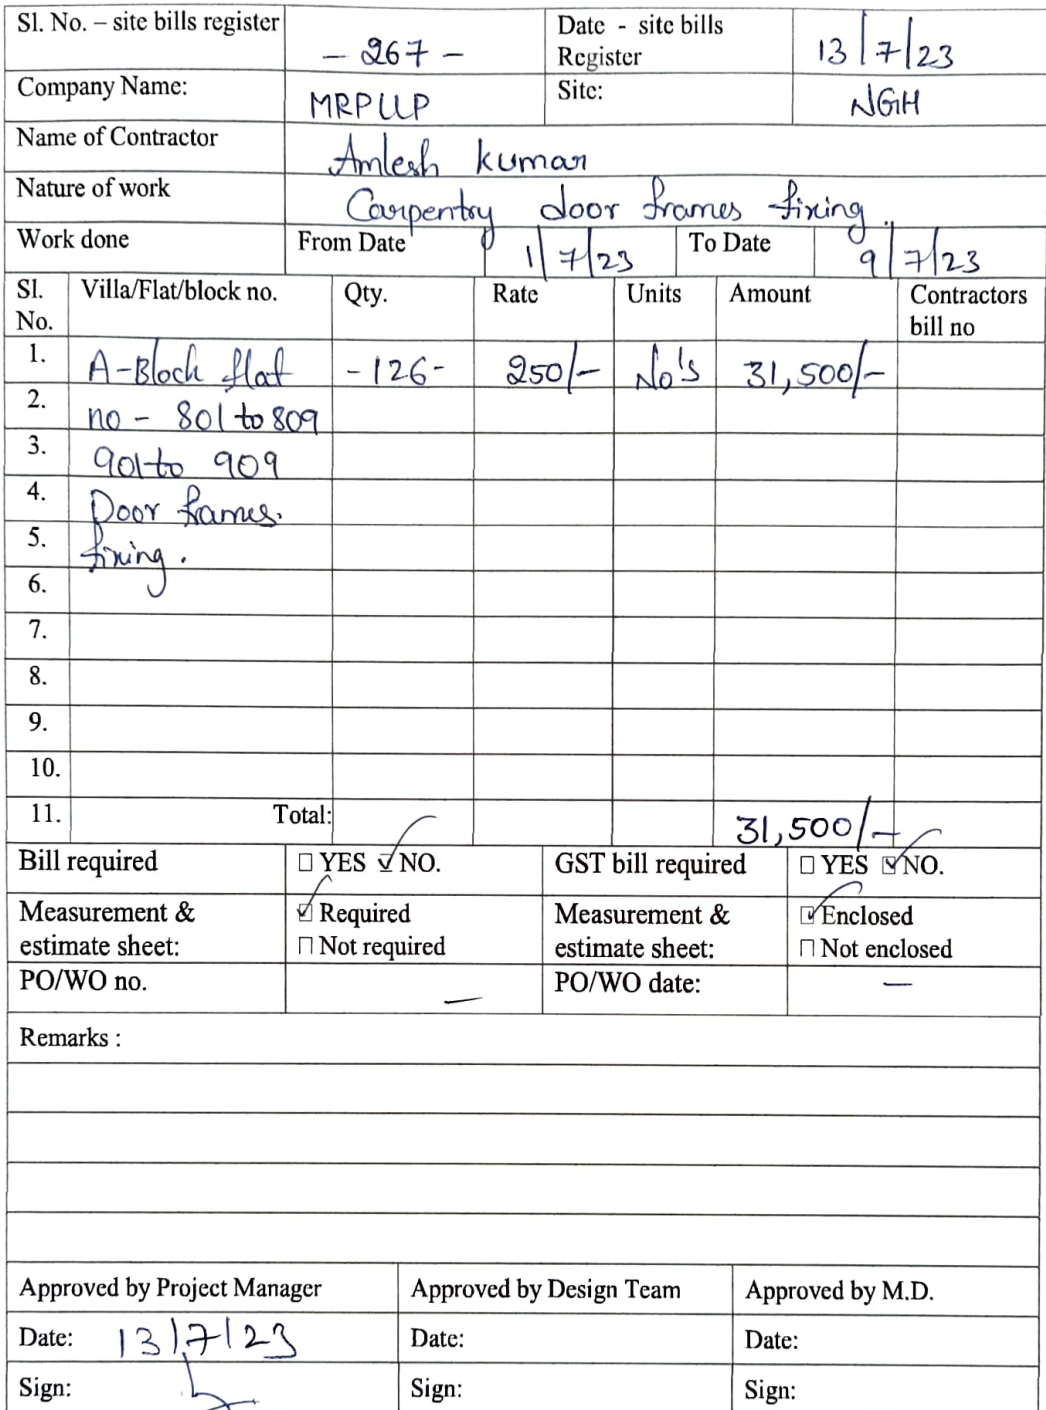 Sl. No. – site bills register - 267 - Date - site bills Register 13/7/23
Company Name: MRPLLP Site: NGH
Name of Contractor Amlesh kumar
Nature of work Carpentry door frames fixing.
Work done From Date 1/7/23 To Date 9/7/23
Sl. No. Villa/Flat/block no. Qty. Rate Units Amount Contractors bill no
1. A-Block flat -126- 250/- No's 31,500/-
2. no - 801 to 809
3. 901 to 909
4. Door frames.
5. fixing.
6.
7.
8.
9.
10.
11. Total: 31,500/-
Bill required ☐ YES ☑ NO. GST bill required ☐ YES ☑ NO.
Measurement & estimate sheet: ☑ Required ☐ Not required Measurement & estimate sheet: ☑ Enclosed ☐ Not enclosed
PO/WO no. — PO/WO date: —
Remarks :
Approved by Project Manager Approved by Design Team Approved by M.D.
Date: 13/7/23 Date: Date:
Sign: Sign: Sign: